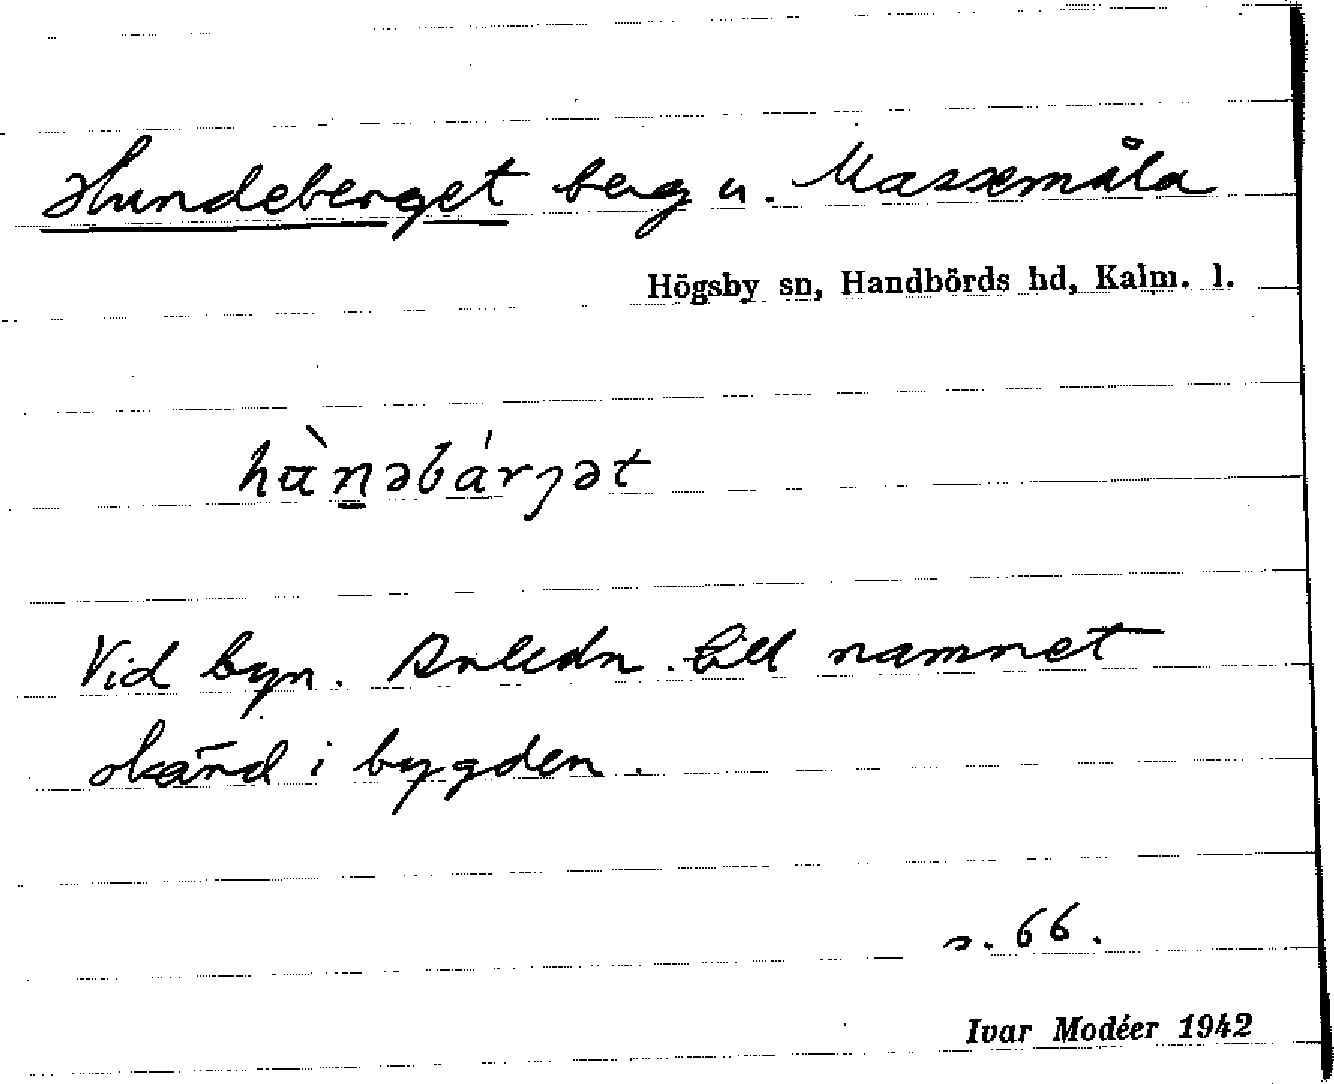 Hundeberget berg u. Massemåla
Högsby sn, Handbörds hd, Kalm. l.
hànəbárȷət
Vid byn. Anledn. till namnet
okänd i bygden.
s. 66.
Ivar Modéer 1942